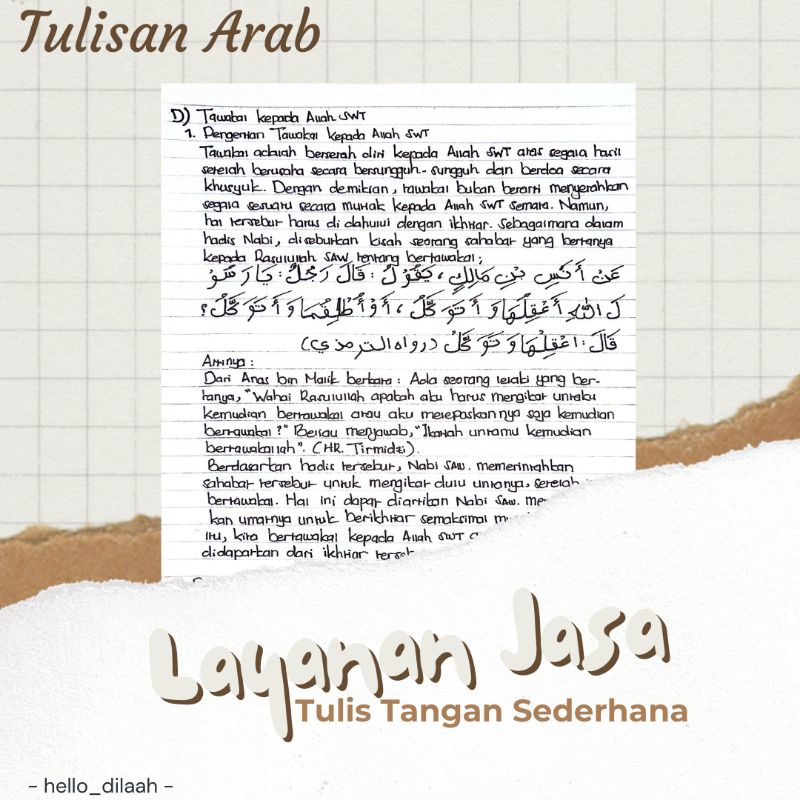 Tulisan Arab
D) Tawakal kepada Allah SWT
1. Pengertian Tawakal kepada Allah SWT
Tawakal adalah berserah diri kepada Allah SWT atas segala hasil
setelah berusaha secara bersungguh-sungguh dan berdoa secara
khusyuk. Dengan demikian, tawakal bukan berarti menyerahkan
segala sesuatu secara mutlak kepada Allah SWT semata. Namun,
hal tersebut harus di dahului dengan ikhtiar. Sebagaimana dalam
hadis Nabi, disebutkan kisah seorang sahabat yang bertanya
kepada Rasulullah SAW tentang bertawakal;
عَنْ أَنَسِ بْنِ مَالِكٍ، يَقُوْلُ: قَالَ رَجُلٌ: يَا رَسُوْ
لَ اللّٰهِ أَعْقِلُهَا وَ أَتَوَكَّلُ، أَوْ أُطْلِقُهَا وَ أَتَوَكَّلُ؟
قَالَ: اعْقِلْهَا وَ تَوَكَّلْ (رواه الترمذي)
Artinya :
Dari Anas bin Malik berkata : Ada seorang lelaki yang ber-
tanya, "Wahai Rasulullah apakah aku harus mengikat untaku
kemudian bertawakal atau aku melepaskannya saja kemudian
bertawakal ?" Beliau menjawab, "Ikatlah untamu kemudian
bertawakallah". (HR. Tirmidzi).
Berdasarkan hadis tersebut, Nabi SAW. memerintahkan
sahabat tersebut untuk mengikat dulu untanya, setelah
bertawakal. Hal ini dapat diartikan Nabi SAW.
kan umatnya untuk berikhtiar semaksimal
itu, kita bertawakal kepada Allah SWT
didapatkan dari ikhtiar
Layanan Jasa
Tulis Tangan Sederhana
- hello_dilaah -